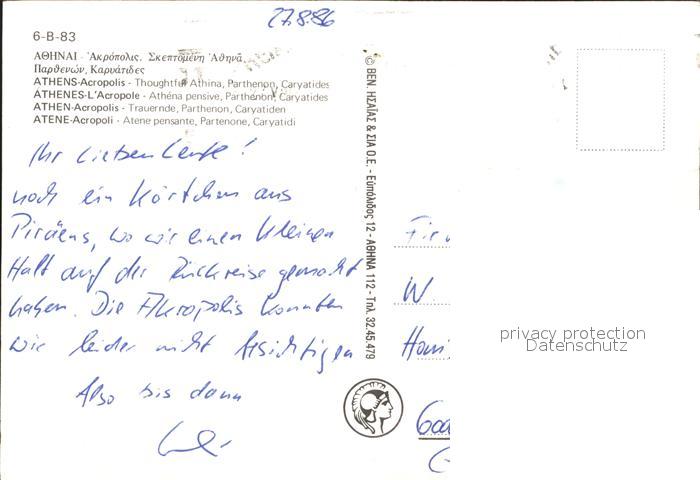 27.8.86
6-B-83
ΑΘΗΝΑΙ - Ἀκρόπολις. Σκεπτομένη Ἀθηνᾶ,
Παρθενών, Καρυάτιδες
ATHENS-Acropolis - Thoughtful Athina, Parthenon, Caryatides
ATHENES-L'Acropole - Athéna pensive, Parthénon, Caryatides
ATHEN-Acropolis - Trauernde, Parthenon, Caryatiden
ATENE-Acropoli - Atene pensante, Partenone, Caryatidi
Ihr Lieben Leute!
noch ein Kärtchen aus
Piräus, wo wir einen kleinen
Halt auf der Rückreise gemacht
haben. Die Akropolis konnten
wir leider nicht besichtigen
Also bis dann
© ΒΕΝ. ΗΣΑΪΑΣ & ΣΙΑ Ο.Ε. - Εὐπόλιδος 12 - ΑΘΗΝΑ 112 - Τηλ. 32.45.479
Fir
W.
privacy protection
Datenschutz